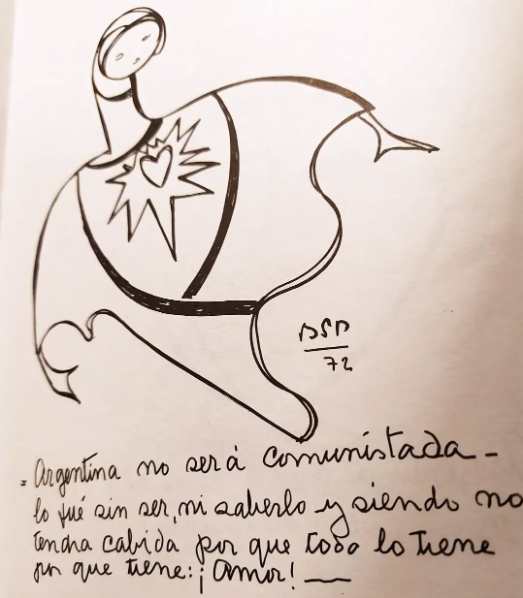 BSP
72
- Argentina no será comunistada -
lo fué sin ser, ni saberlo y siendo no
tendra cabida por que todo lo tiene
por que tiene: ¡Amor! —